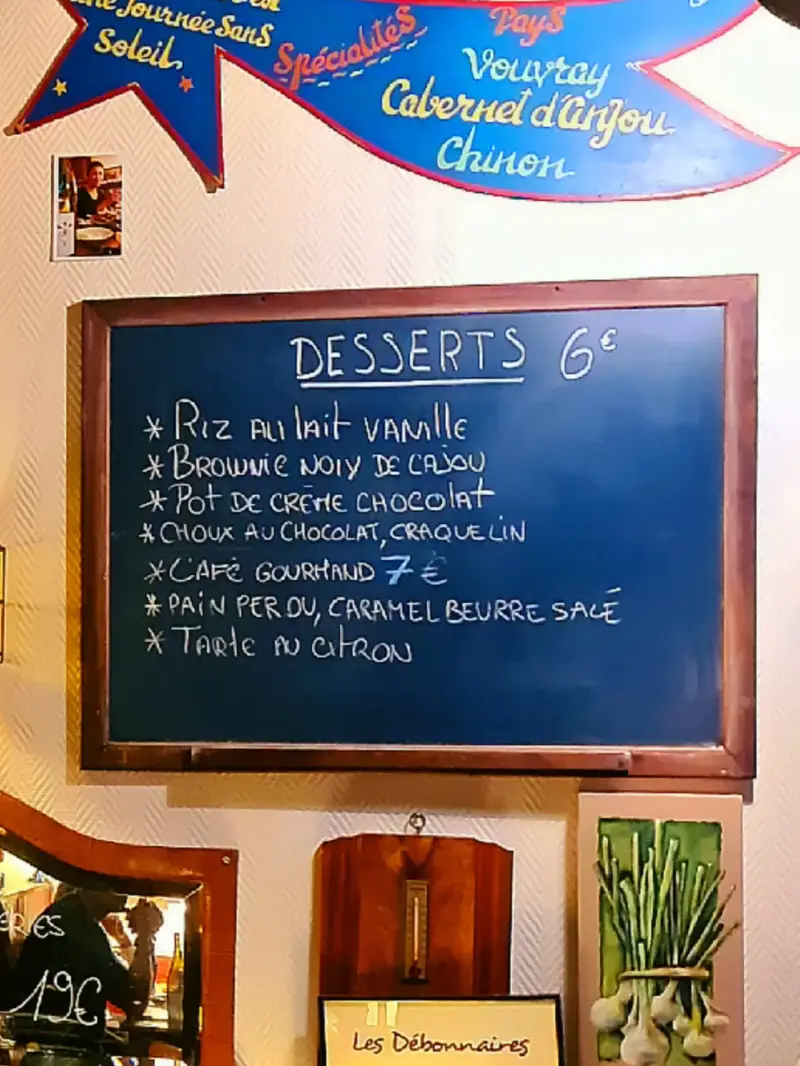 une Journée Sans
Soleil
Spécialités
Pays
Vouvray
Cabernet d'anjou
Chinon
DESSERTS 6€
* Riz au lait vanille
* BROWNIE NOIX DE CAJOU
* POT DE CRÈME CHOCOLAT
* CHOUX AU CHOCOLAT, CRAQUELIN
* CAFÉ GOURMAND 7€
* PAIN PERDU, CARAMEL BEURRE SALÉ
* Tarte au citron
19€
Les Débonnaires